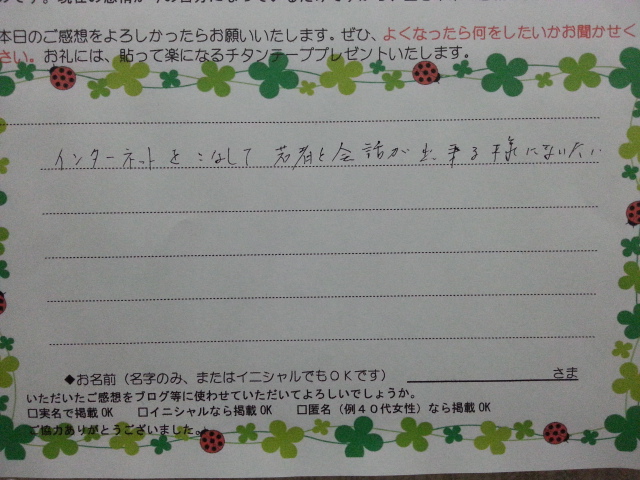 本日のご感想をよろしかったらお願いいたします。ぜひ、よくなったら何をしたいかお聞かせく
さい。お礼には、貼って楽になるチタンテーププレゼントいたします。
インターネットをこなして若者と会話が出来る様になりたい
◆お名前（名字のみ、またはイニシャルでもＯＫです） さま
いただいたご感想をブログ等に使わせていただいてよろしいでしょうか。
□実名で掲載 OK □イニシャルなら掲載 OK □匿名（例４０代女性）なら掲載 OK
ご協力ありがとうございました。